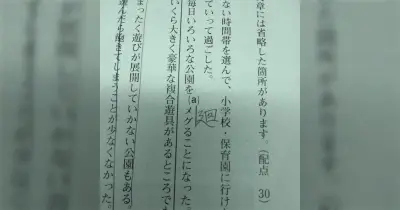 章には省略した箇所があります。(配点 30)
ない時間帯を選んで、小学校・保育園に行け
ていって過ごした。
毎日いろいろな公園を(a)メグることになった。
廻
いくら大きく豪華な複合遊具があるところでも
まったく遊びが展開していかない公園もある。
遊んだら飽きてしまうことが少なくなかった。